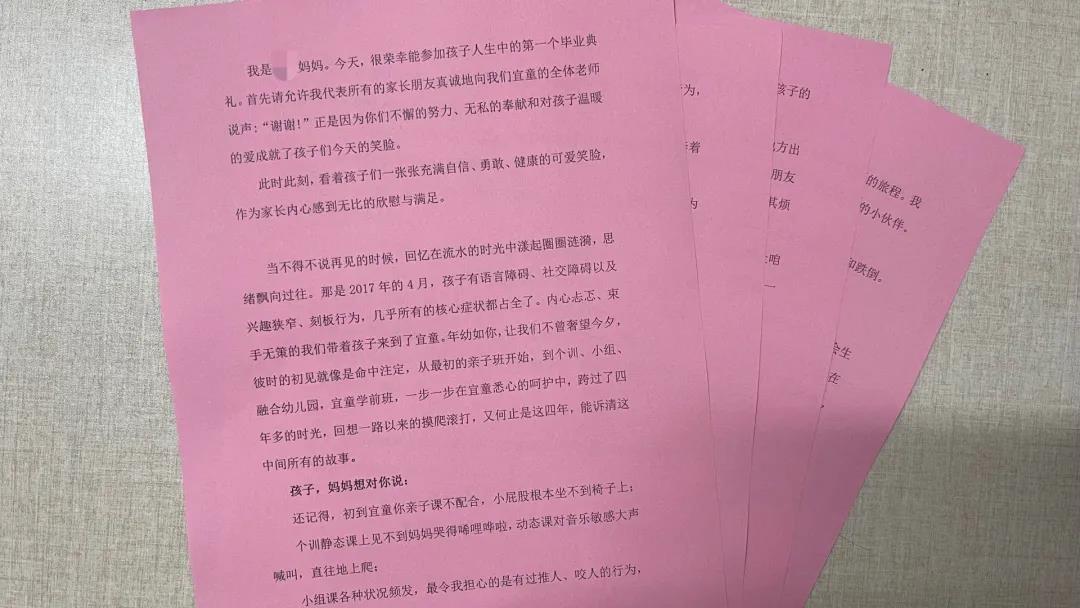 我是 妈妈。今天，很荣幸能参加孩子人生中的第一个毕业典
礼。首先请允许我代表所有的家长朋友真诚地向我们宜童的全体老师
说声：“谢谢！”正是因为你们不懈的努力、无私的奉献和对孩子温暖
的爱成就了孩子们今天的笑脸。
此时此刻，看着孩子们一张张充满自信、勇敢、健康的可爱笑脸，
作为家长内心感到无比的欣慰与满足。
当不得不说再见的时候，回忆在流水的时光中漾起圈圈涟漪，思
绪飘向过往。那是 2017 年的 4 月，孩子有语言障碍、社交障碍以及
兴趣狭窄、刻板行为，几乎所有的核心症状都占全了。内心忐忑、束
手无策的我们带着孩子来到了宜童。年幼如你，让我们不曾奢望今夕，
彼时的初见就像是命中注定，从最初的亲子班开始，到个训、小组、
融合幼儿园，宜童学前班，一步一步在宜童悉心的呵护中，跨过了四
年多的时光，回想一路以来的摸爬滚打，又何止是这四年，能诉清这
中间所有的故事。
孩子，妈妈想对你说：
还记得，初到宜童你亲子课不配合，小屁股根本坐不到椅子上；
个训静态课上见不到妈妈哭得唏哩哗啦，动态课对音乐敏感大声
喊叫，直往地上爬；
小组课各种状况频发，最令我担心的是有过推人、咬人的行为，
行为，
着
为
孩子的
地方出
朋友
其烦
咱
一
的旅程。我
的小伙伴。
和跌倒。
会生
在